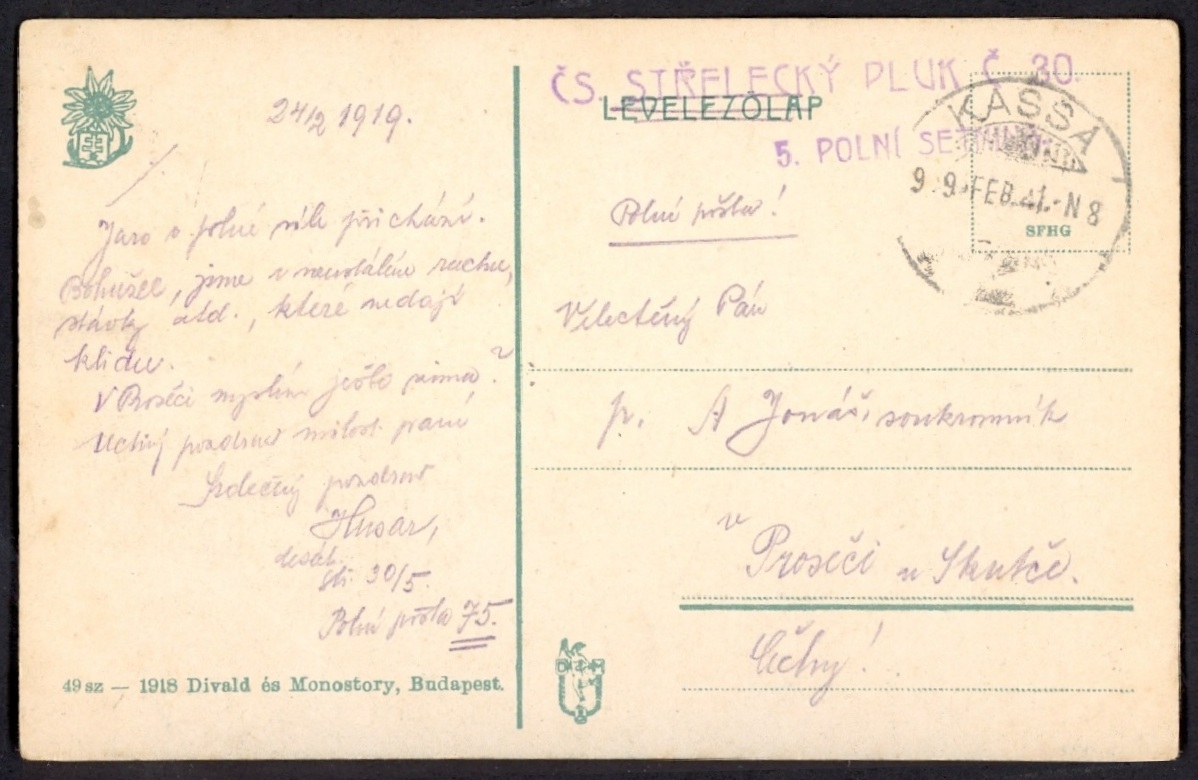 24/2 1919.
Jaro v plné síle přichází.
Bohužel, jsme v neustálém ruchu,
stávky atd., které nedají
klidu.
V Proseči myslím ještě zima?
Uctivý pozdrav milost. paní
Srdečný pozdrav
Husar,
desát.
30/5.
Polní pošta 75.
49 sz — 1918 Divald és Monostory, Budapest.
ČS. STŘELECKÝ PLUK Č. 30.
LEVELEZŐLAP
5. POLNÍ SETNINA
KASSA
FEB. N 8
SFHG
Polní pošta!
Velectěný Pán
p. A Jonáš, soukromník
v
Proseči u Skutče.
Čechy!